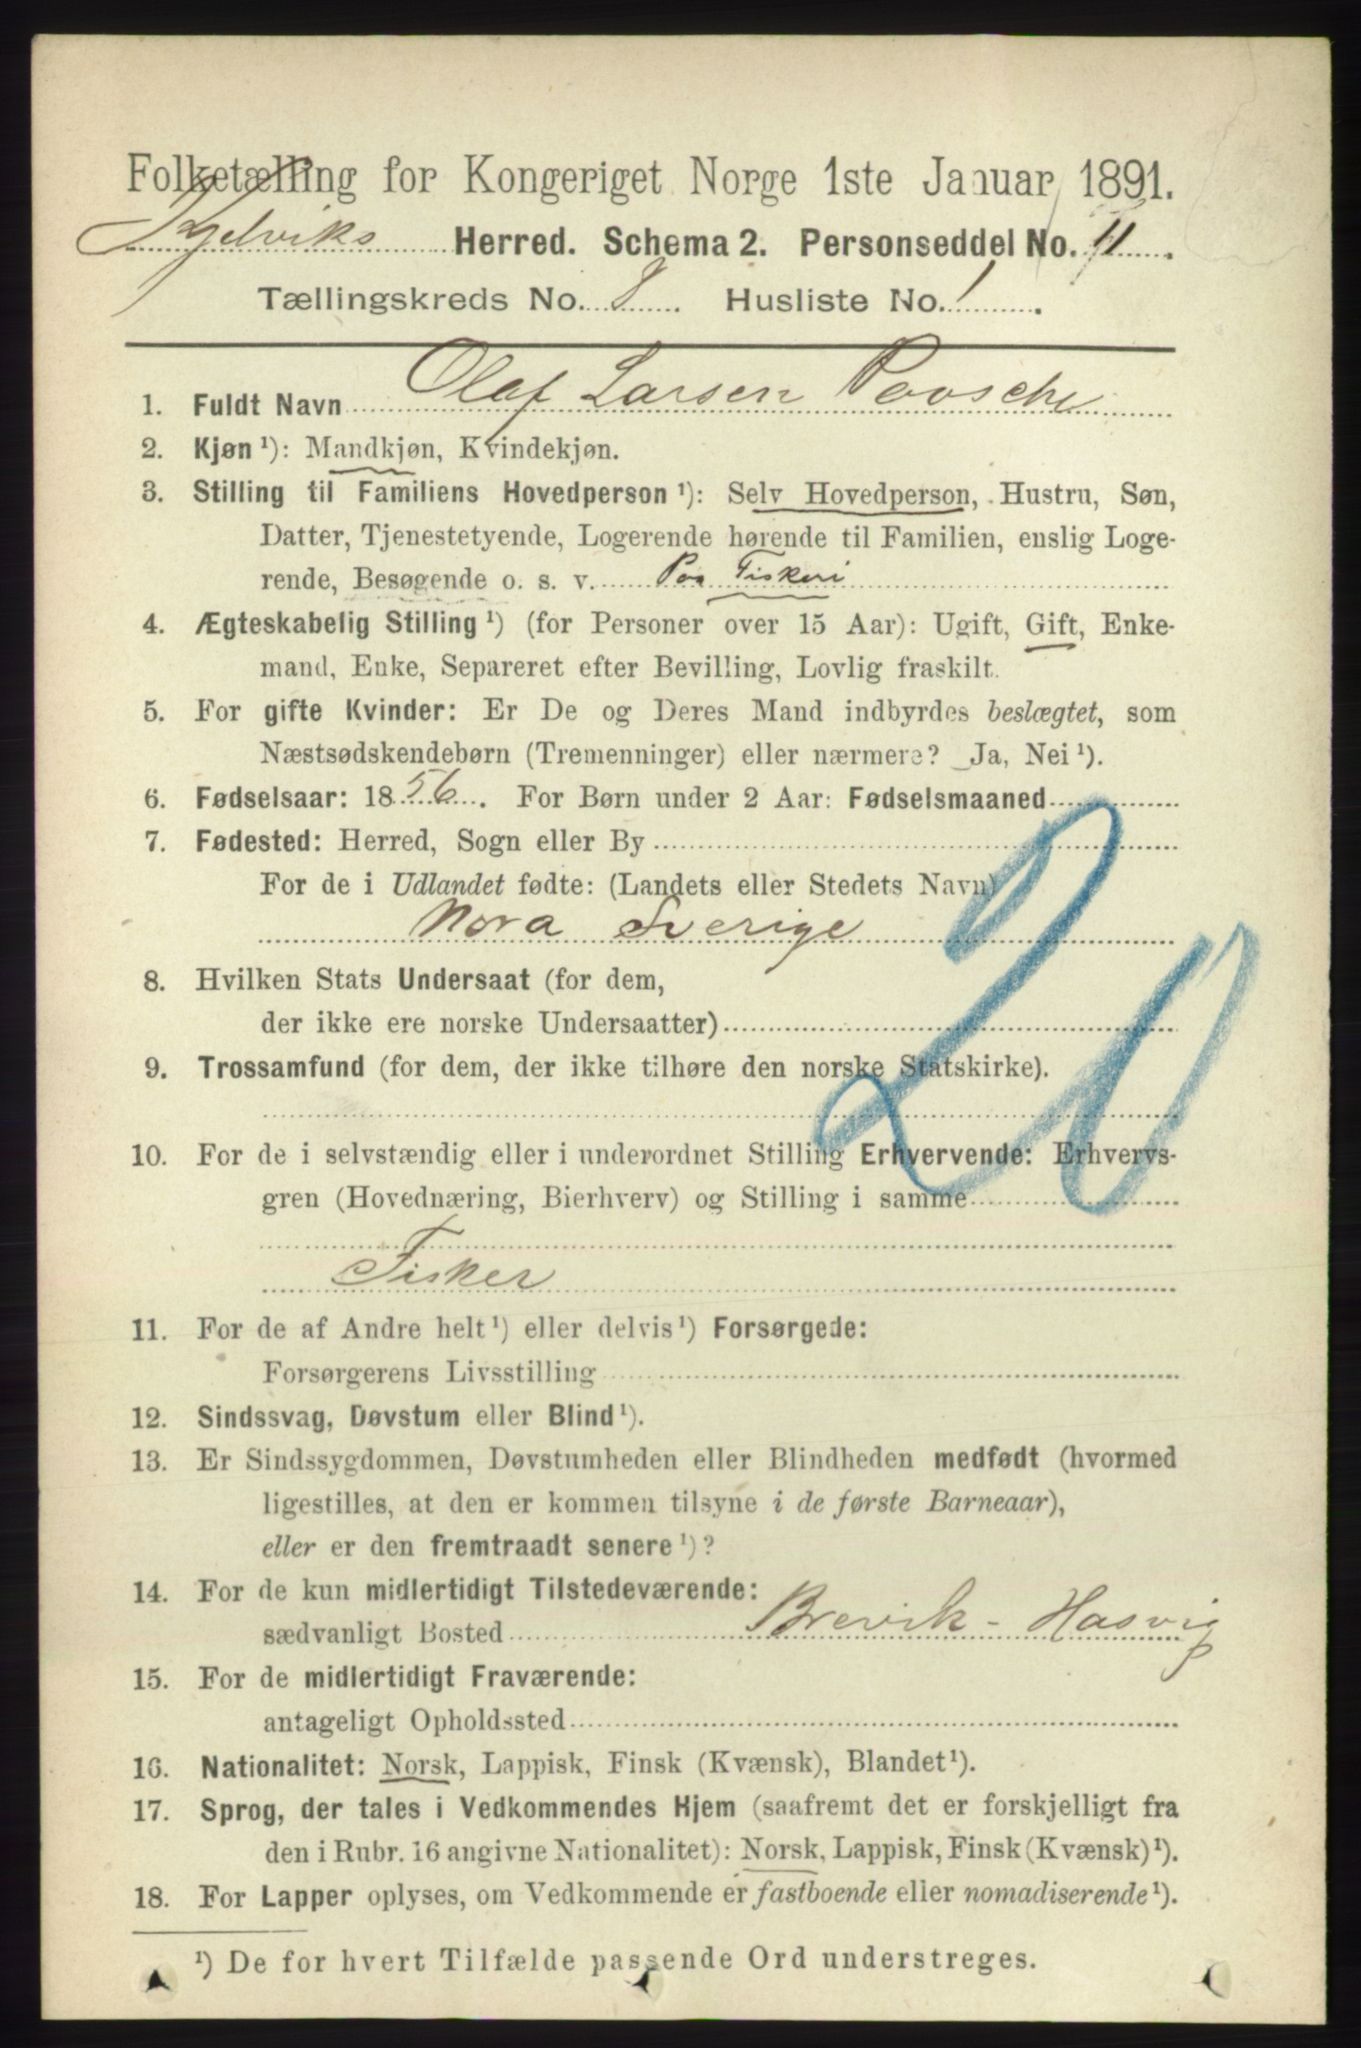 Folketælling for Kongeriget Norge 1ste Januar 1891.
Kjelviks Herred. Schema 2. Personseddel No. 11.
Tællingskreds No. 8. Husliste No. 1.
1. Fuldt Navn Olaf Larsen
2. Kjøn ¹): Mandkjøn, Kvindekjøn.
3. Stilling til Familiens Hovedperson ¹): Selv Hovedperson, Hustru, Søn,
Datter, Tjenestetyende, Logerende hørende til Familien, enslig Loge-
rende, Besøgende o. s. v. Paa Fiskeri
4. Ægteskabelig Stilling ¹) (for Personer over 15 Aar): Ugift, Gift, Enke-
mand, Enke, Separeret efter Bevilling, Lovlig fraskilt.
5. For gifte Kvinder: Er De og Deres Mand indbyrdes beslægtet, som
Næstsødskendebørn (Tremenninger) eller nærmere? Ja, Nei ¹).
6. Fødselsaar: 1856. For Børn under 2 Aar: Fødselsmaaned
7. Fødested: Herred, Sogn eller By
For de i Udlandet fødte: (Landets eller Stedets Navn)
Nora Sverige
20
8. Hvilken Stats Undersaat (for dem,
der ikke ere norske Undersaatter)
9. Trossamfund (for dem, der ikke tilhøre den norske Statskirke).
10. For de i selvstændig eller i underordnet Stilling Erhvervende: Erhvervs-
gren (Hovednæring, Bierhverv) og Stilling i samme
Fisker
11. For de af Andre helt ¹) eller delvis ¹) Forsørgede:
Forsørgerens Livsstilling
12. Sindssvag, Døvstum eller Blind ¹).
13. Er Sindssygdommen, Døvstumheden eller Blindheden medfødt (hvormed
ligestilles, at den er kommen tilsyne i de første Barneaar),
eller er den fremtraadt senere ¹)?
14. For de kun midlertidigt Tilstedeværende:
sædvanligt Bosted Brevik - Hasvig
15. For de midlertidigt Fraværende:
antageligt Opholdssted
16. Nationalitet: Norsk, Lappisk, Finsk (Kvænsk), Blandet ¹).
17. Sprog, der tales i Vedkommendes Hjem (saafremt det er forskjelligt fra
den i Rubr. 16 angivne Nationalitet): Norsk, Lappisk, Finsk (Kvænsk) ¹).
18. For Lapper oplyses, om Vedkommende er fastboende eller nomadiserende ¹).
¹) De for hvert Tilfælde passende Ord understreges.